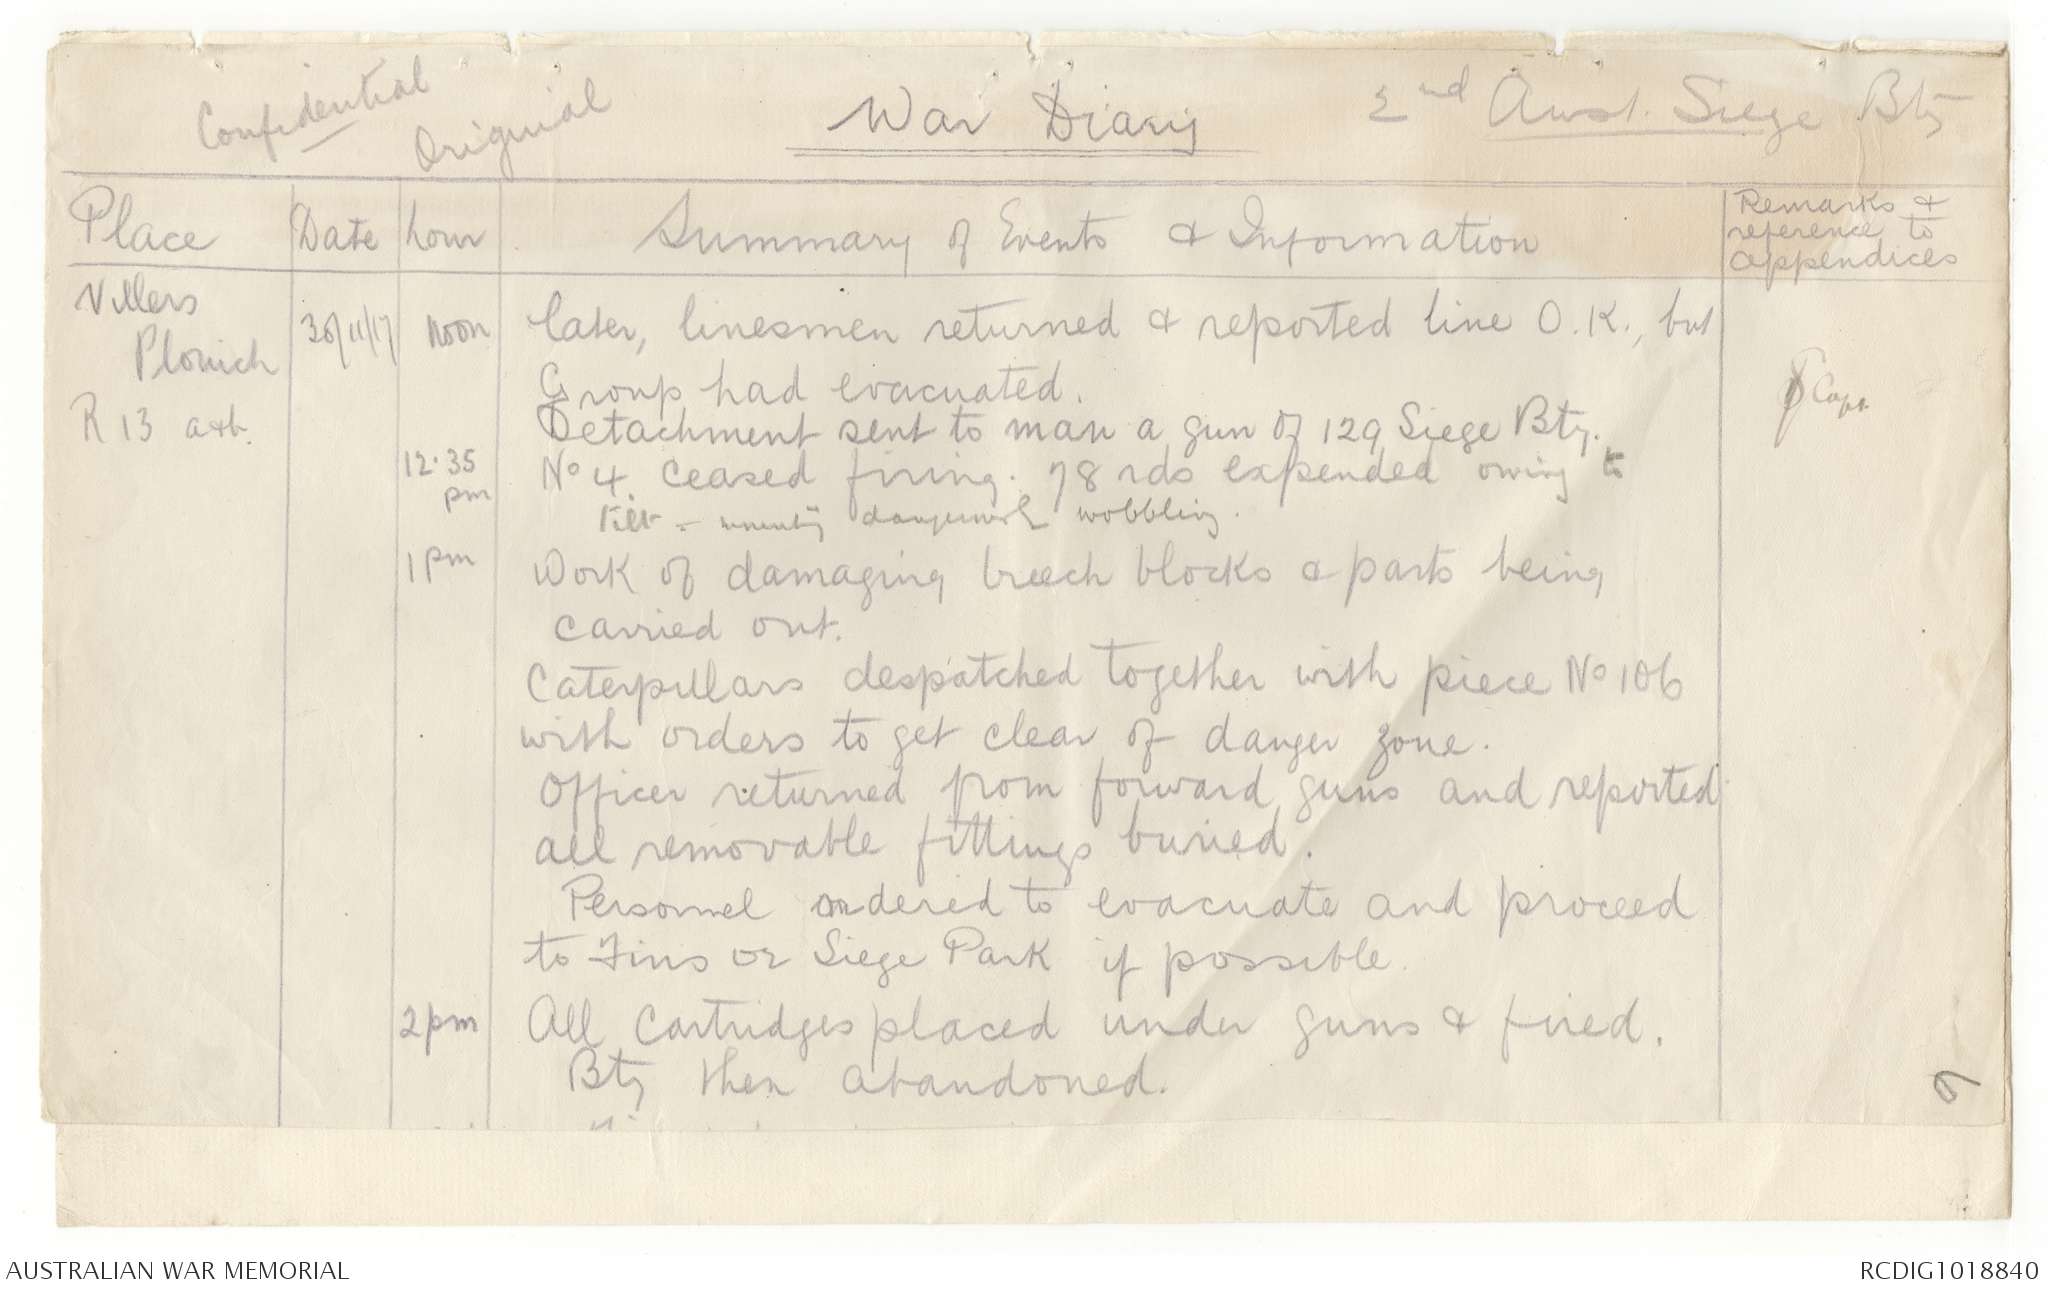 Confidential
Original
War Diary
2nd Aust. Siege Bty
Place
Date
hour
Summary of Events & Information
Remarks &
reference to
appendices
Villers
Plouich
R 13 a & b.
30/11/17
noon
later, linesmen returned & reported line O.K., but
Group had evacuated.
Detachment sent to man a gun of 129 Siege Bty.
12.35
pm
No 4 ceased firing. 78 rds expended owing to
tilt - dangerously wobbling.
1 pm
Work of damaging breech blocks & parts being
carried out.
Caterpillars despatched together with piece No 106
with orders to get clear of danger zone.
Officer returned from forward guns and reported
all removable fittings buried.
Personnel ordered to evacuate and proceed
to Fins or Siege Park if possible.
2 pm
All Cartridges placed under guns & fired.
Bty then abandoned.
Capt.
AUSTRALIAN WAR MEMORIAL
RCDIG1018840